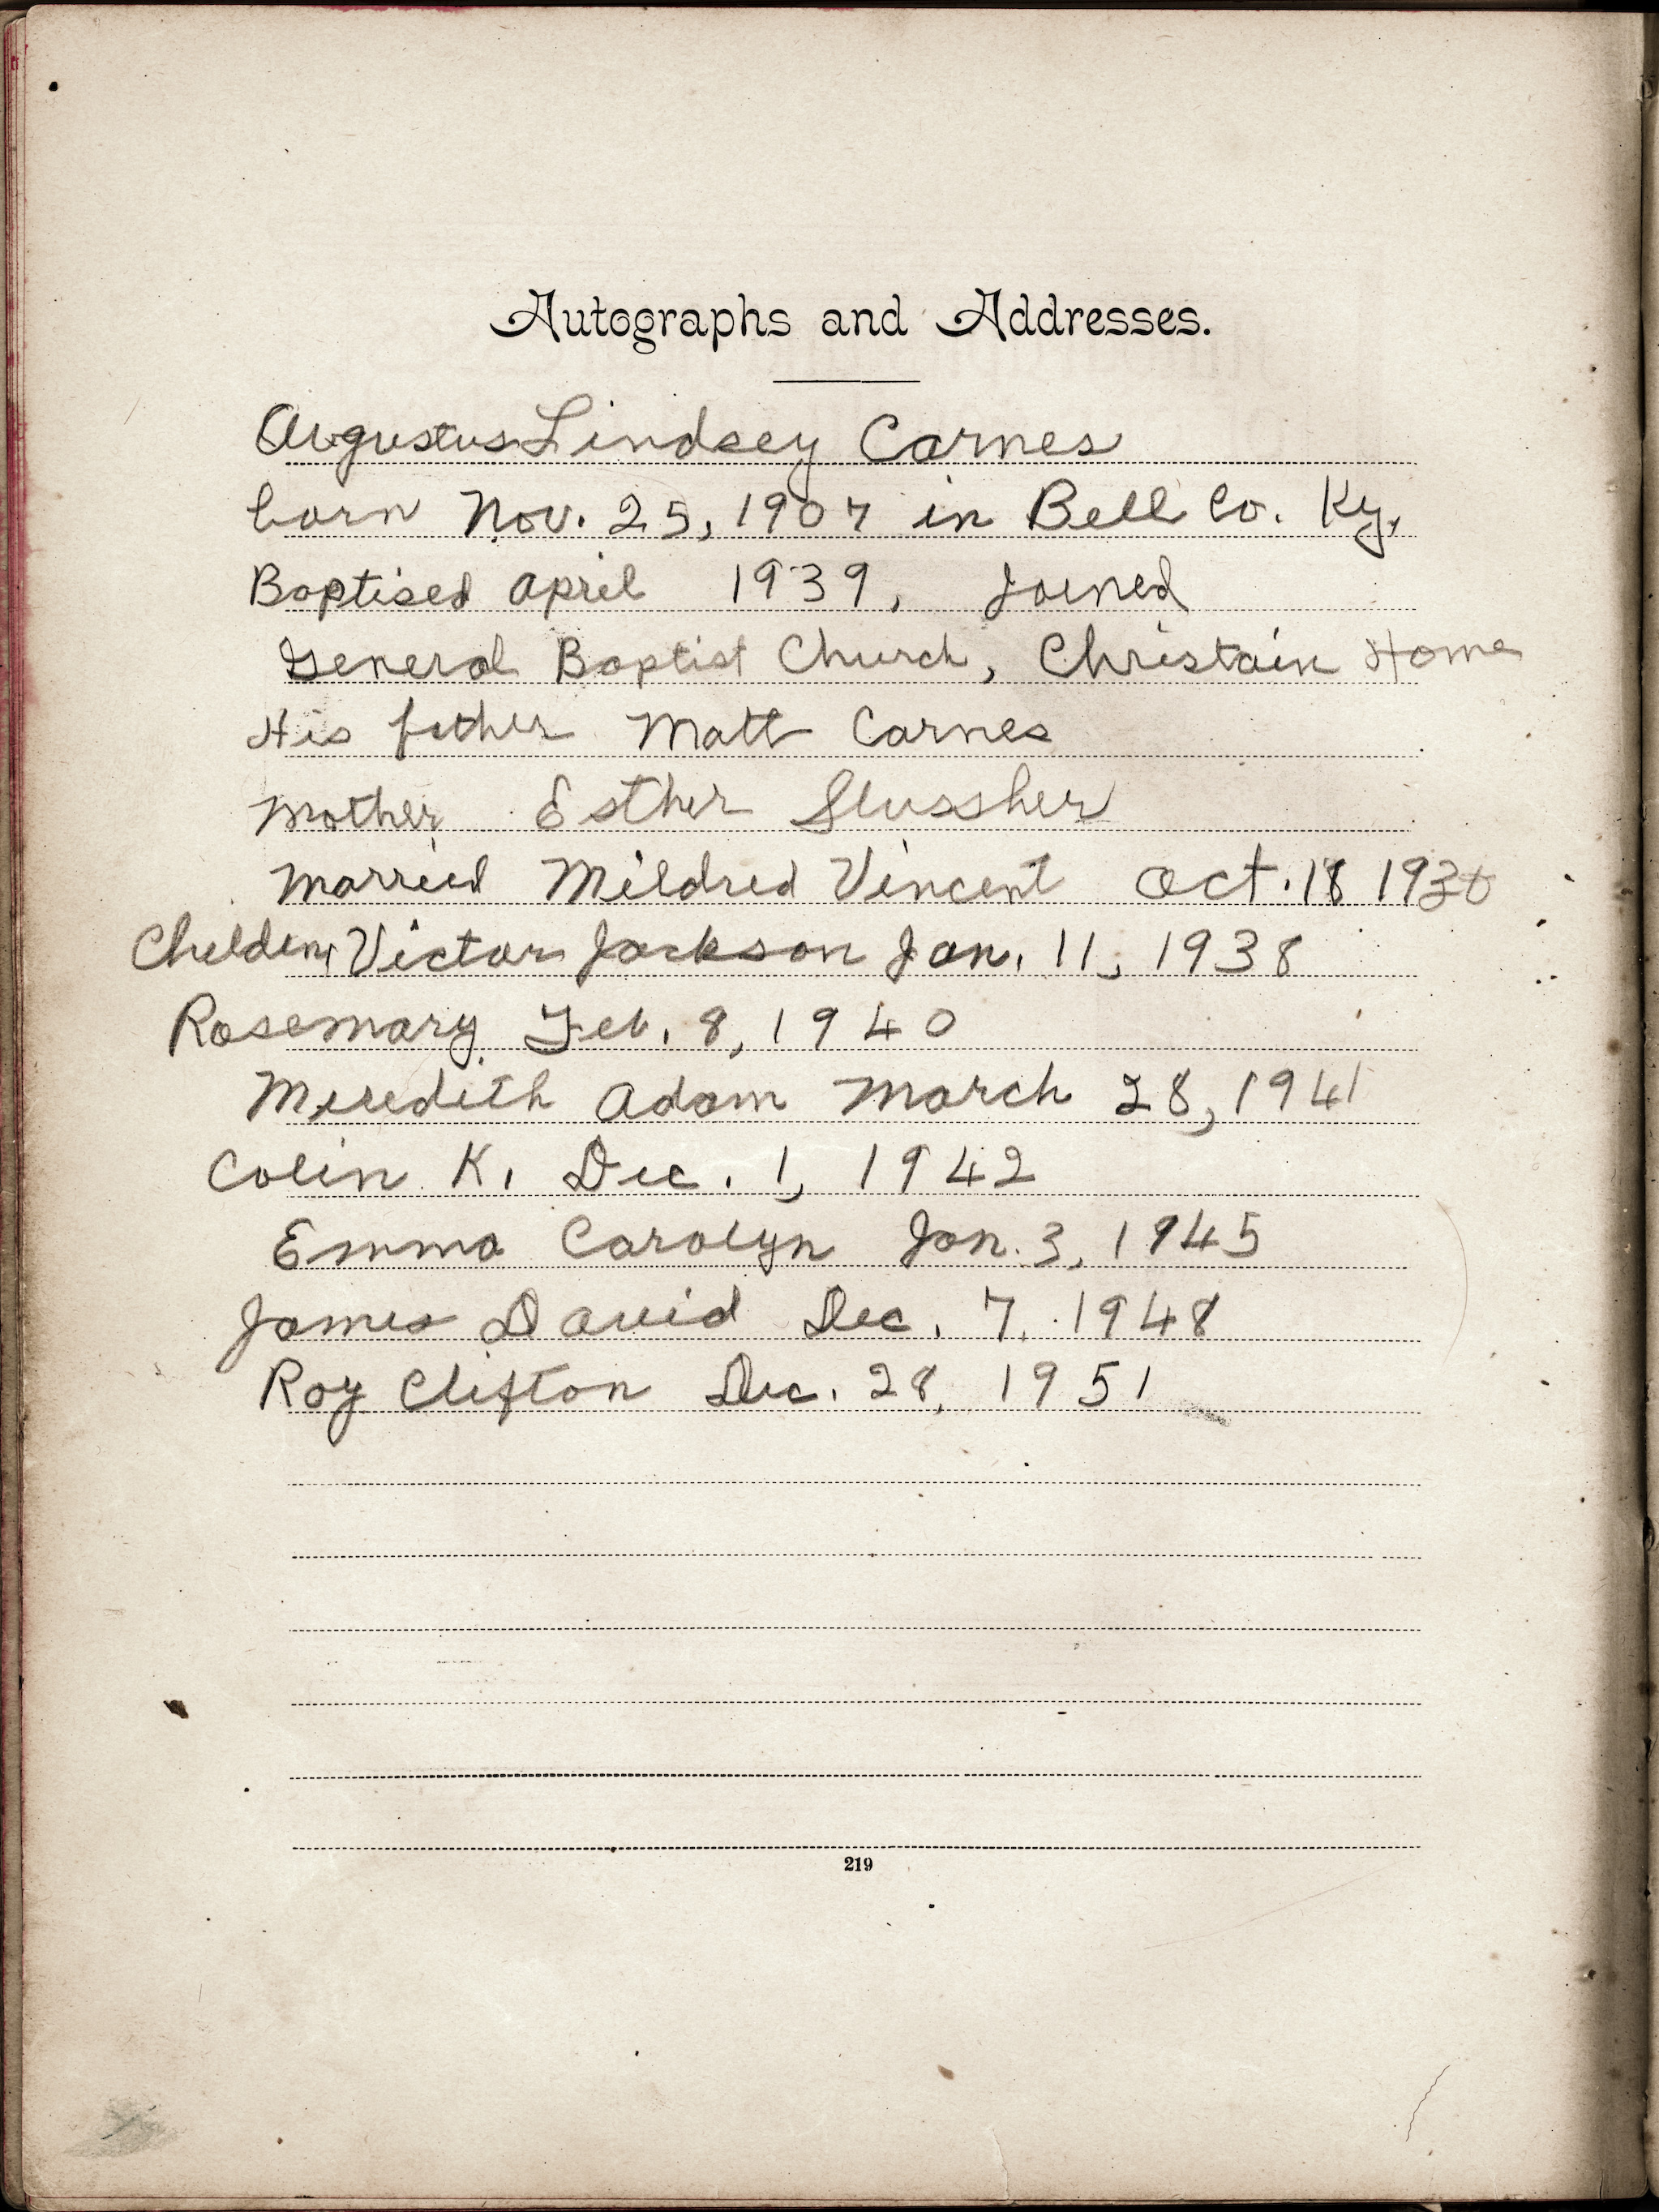 Autographs and Addresses.
Augustus Lindsey Carnes
born Nov. 25, 1907 in Bell Co. Ky.
Baptised April 1939, Joined
General Baptist Church, Christain Home
His father Matt Carnes
Mother Esther Slussher
Married Mildred Vincent Oct. 18
Victor Jackson Jan. 11, 1938
Rosemary Feb. 8, 1940
Meredith Adam March 28, 1941
Colin K. Dec. 1, 1942
Emma Carolyn Jan. 3, 1945
James David Dec. 7, 1948
Roy Clifton Dec. 28, 1951
219